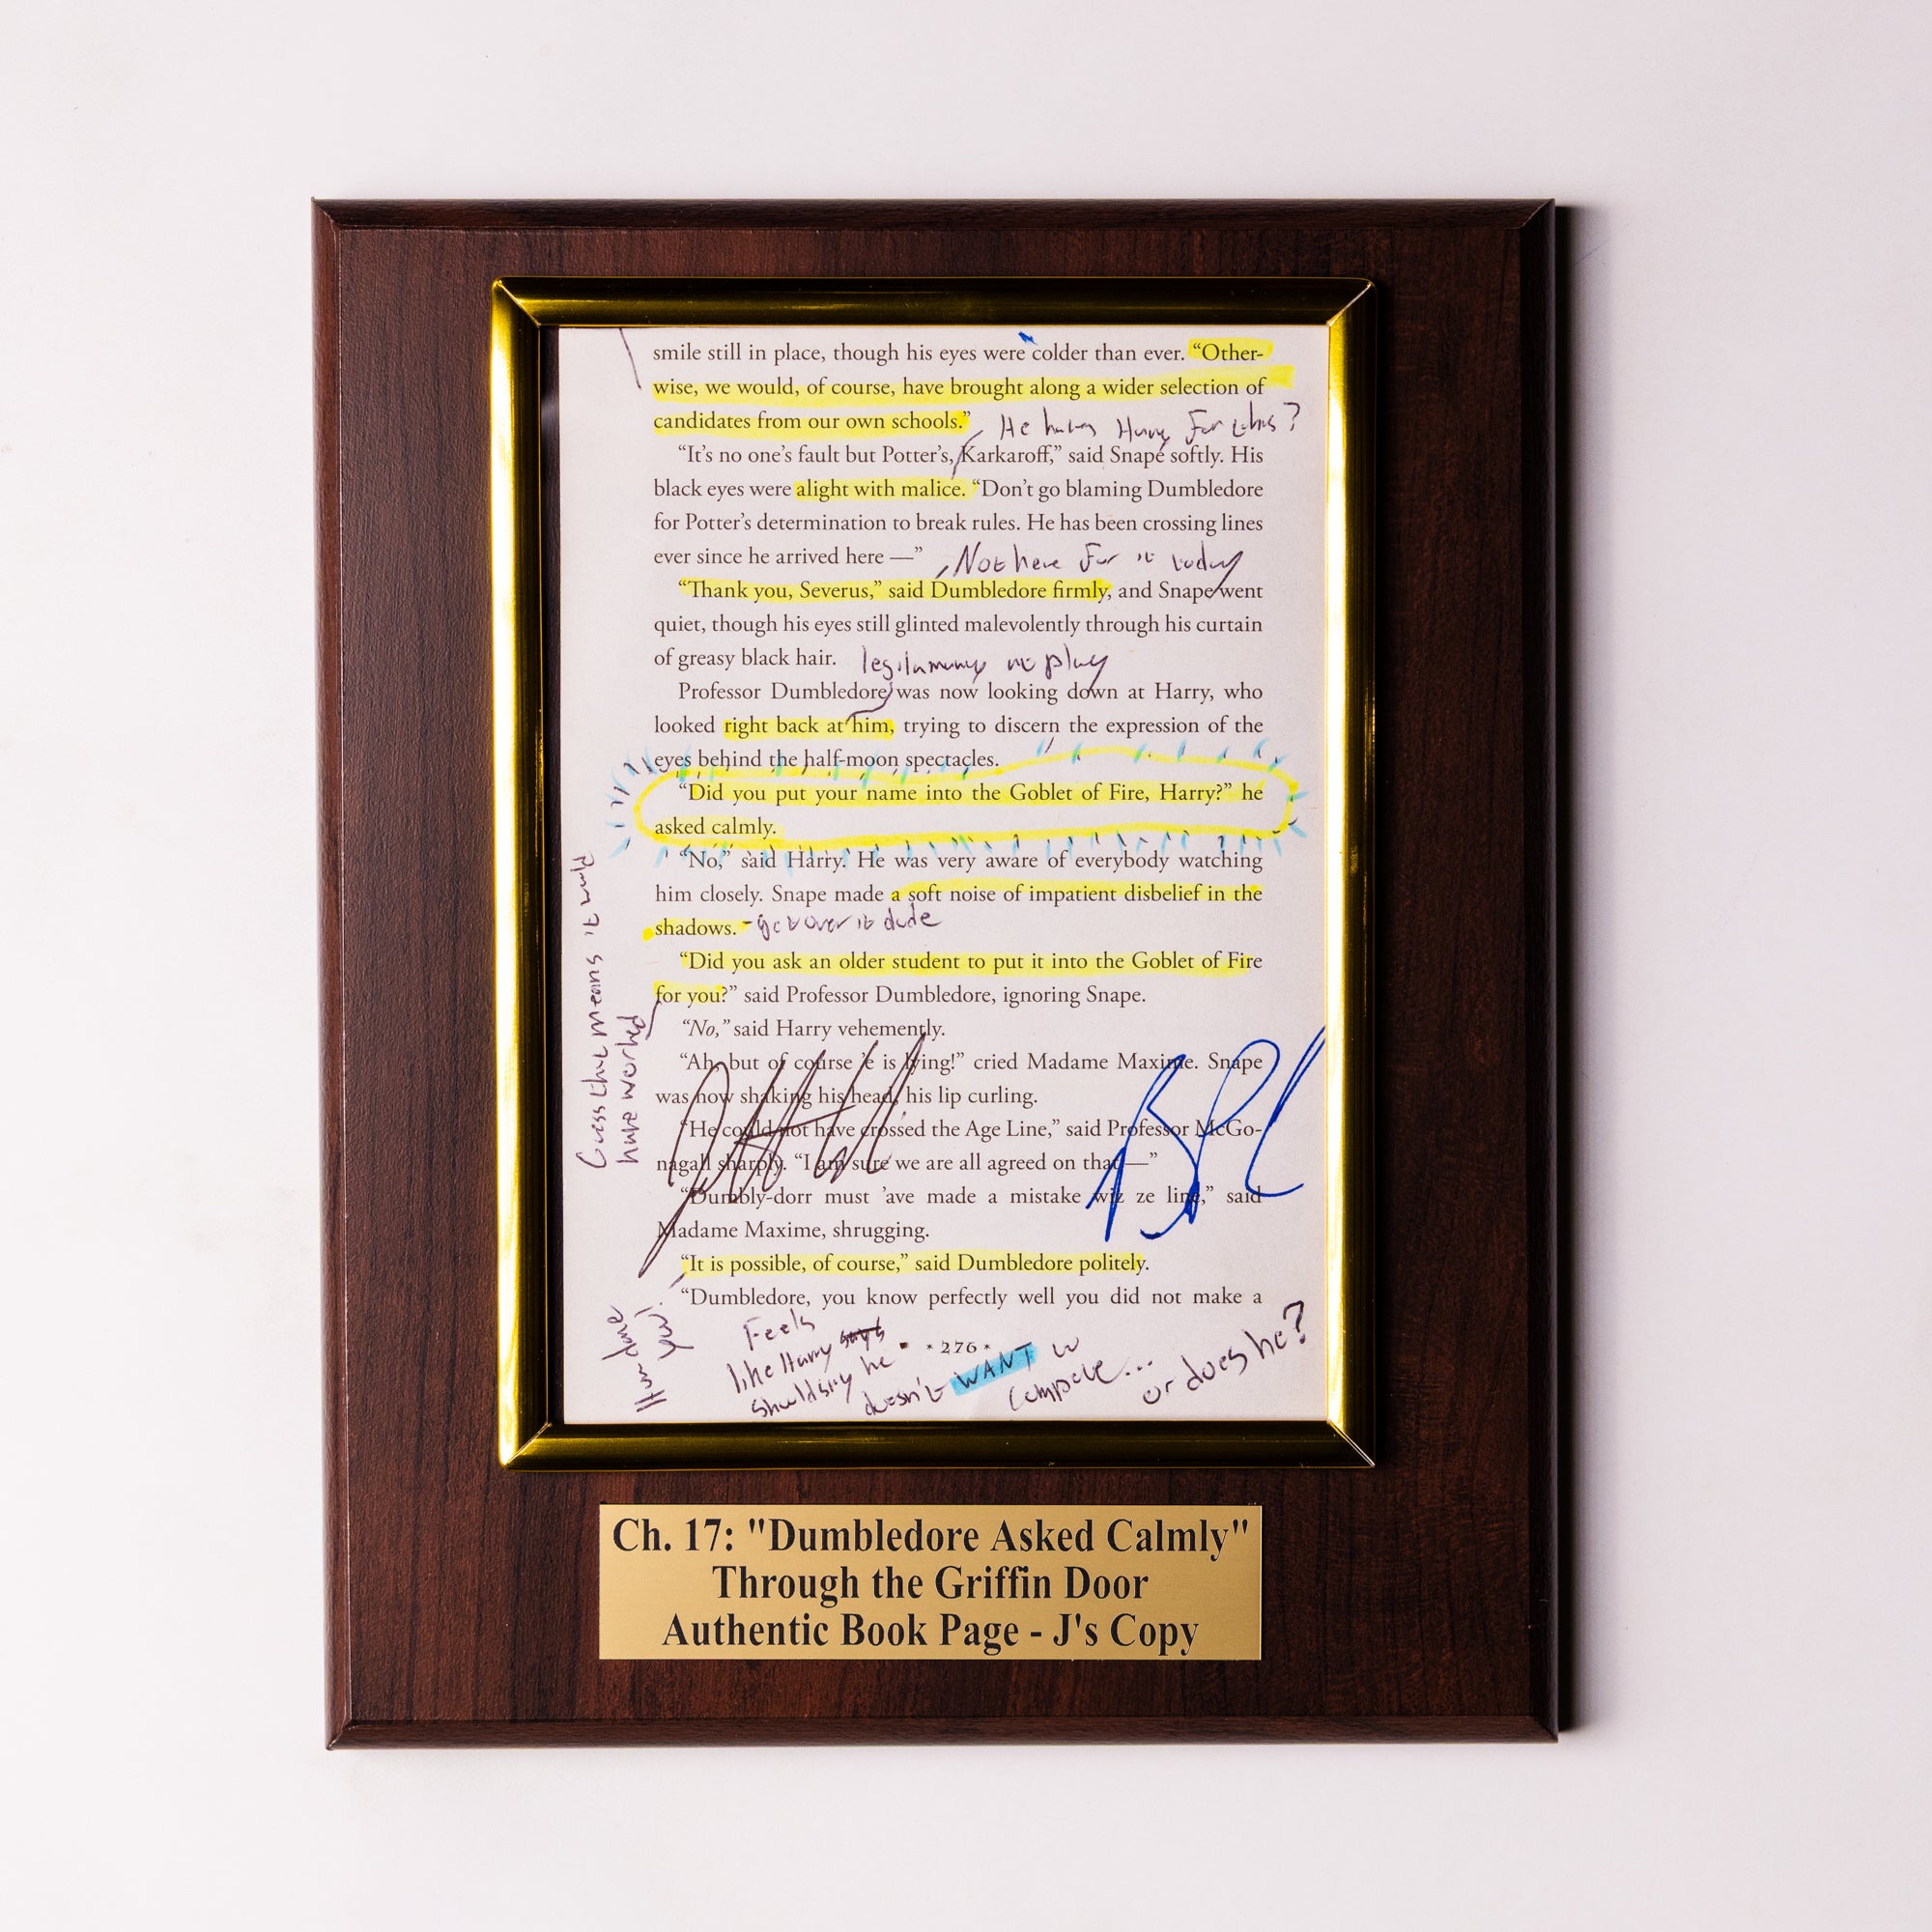 smile still in place, though his eyes were colder than ever. “Other-
wise, we would, of course, have brought along a wider selection of
candidates from our own schools.”
He Harry for this?
“It’s no one’s fault but Potter’s, Karkaroff,” said Snape softly. His
black eyes were alight with malice. “Don’t go blaming Dumbledore
for Potter’s determination to break rules. He has been crossing lines
ever since he arrived here —”
Not here for it today
“Thank you, Severus,” said Dumbledore firmly, and Snape went
quiet, though his eyes still glinted malevolently through his curtain
of greasy black hair.
Professor Dumbledore was now looking down at Harry, who
looked right back at him, trying to discern the expression of the
eyes behind the half-moon spectacles.
“Did you put your name into the Goblet of Fire, Harry?” he
asked calmly.
“No,” said Harry. He was very aware of everybody watching
him closely. Snape made a soft noise of impatient disbelief in the
shadows.
- get over it dude
“Did you ask an older student to put it into the Goblet of Fire
for you?” said Professor Dumbledore, ignoring Snape.
Guess that means it may
have worked
“No,” said Harry vehemently.
“Ah, but of course ’e is lying!” cried Madame Maxime. Snape
was now shaking his head, his lip curling.
“He could not have crossed the Age Line,” said Professor McGo-
nagall sharply. “I am sure we are all agreed on that —”
“Dumbly-dorr must ’ave made a mistake wiz ze line,” said
Madame Maxime, shrugging.
“It is possible, of course,” said Dumbledore politely.
“Dumbledore, you know perfectly well you did not make a
How dare
you!
*276*
Feels
like Harry says
should say he
doesn't WANT to
compete...
or does he?
Ch. 17: "Dumbledore Asked Calmly"
Through the Griffin Door
Authentic Book Page - J's Copy